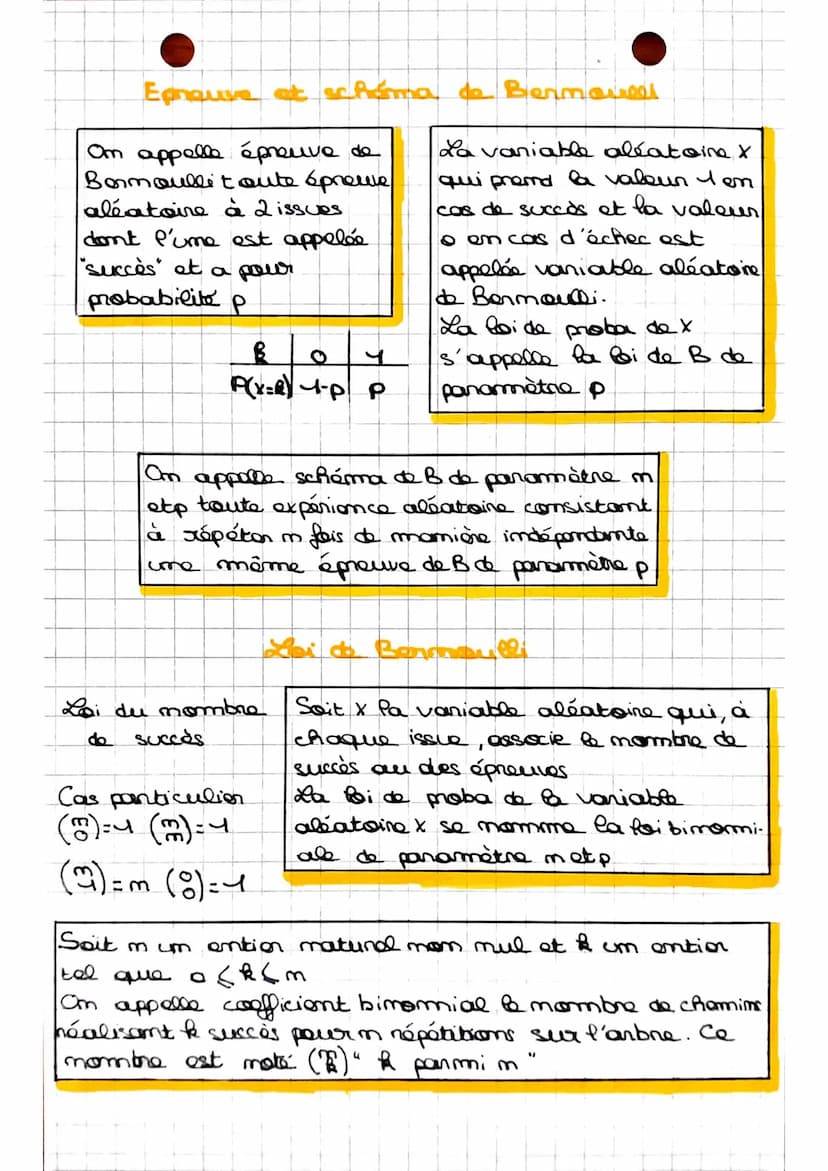 Epreuve et schéma de Bernoulli
On appelle épreuve de
Bernoulli toute épreuve
aléatoire à 2 issues
dont l'une est appelée
"succès" et a pour
probabilité p
La variable aléatoire X
qui prend la valeur 1 en
cas de succès et la valeur
0 en cas d'échec est
appelée variable aléatoire
de Bernoulli.
La loi de proba de X
s'appelle la loi de B de
paramètre p
k 0 1
P(X=k) 1-p p
On appelle schéma de B de paramètre n
et p toute expérience aléatoire consistant
à répéter n fois de manière indépendante
une même épreuve de B de paramètre p
Loi de Bernoulli
Loi du nombre
de succès
Cas particulier
(n 0)=1 (n n)=1
(n 1)=n (0 0)=1
Soit X la variable aléatoire qui, à
chaque issue, associe le nombre de
succès au des épreuves
La loi de proba de la variable
aléatoire X se nomme la loi binomi-
ale de paramètre n et p
Soit n un entier naturel non nul et k un entier
tel que 0 ⩽ k ⩽ n
On appelle coefficient binomial le nombre de chemins
réalisant k succès pour n répétitions sur l'arbre. Ce
nombre est noté (n k) "k parmi n"